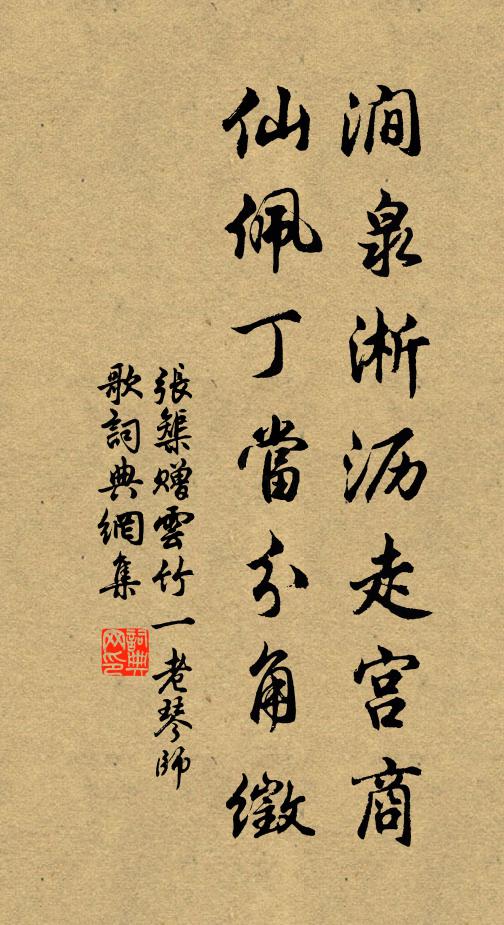 澗泉淅沥走宫商
仙佩丁當分角徵
張榘贈雲竹一老琴師
歌詞典網集
詞典
网印